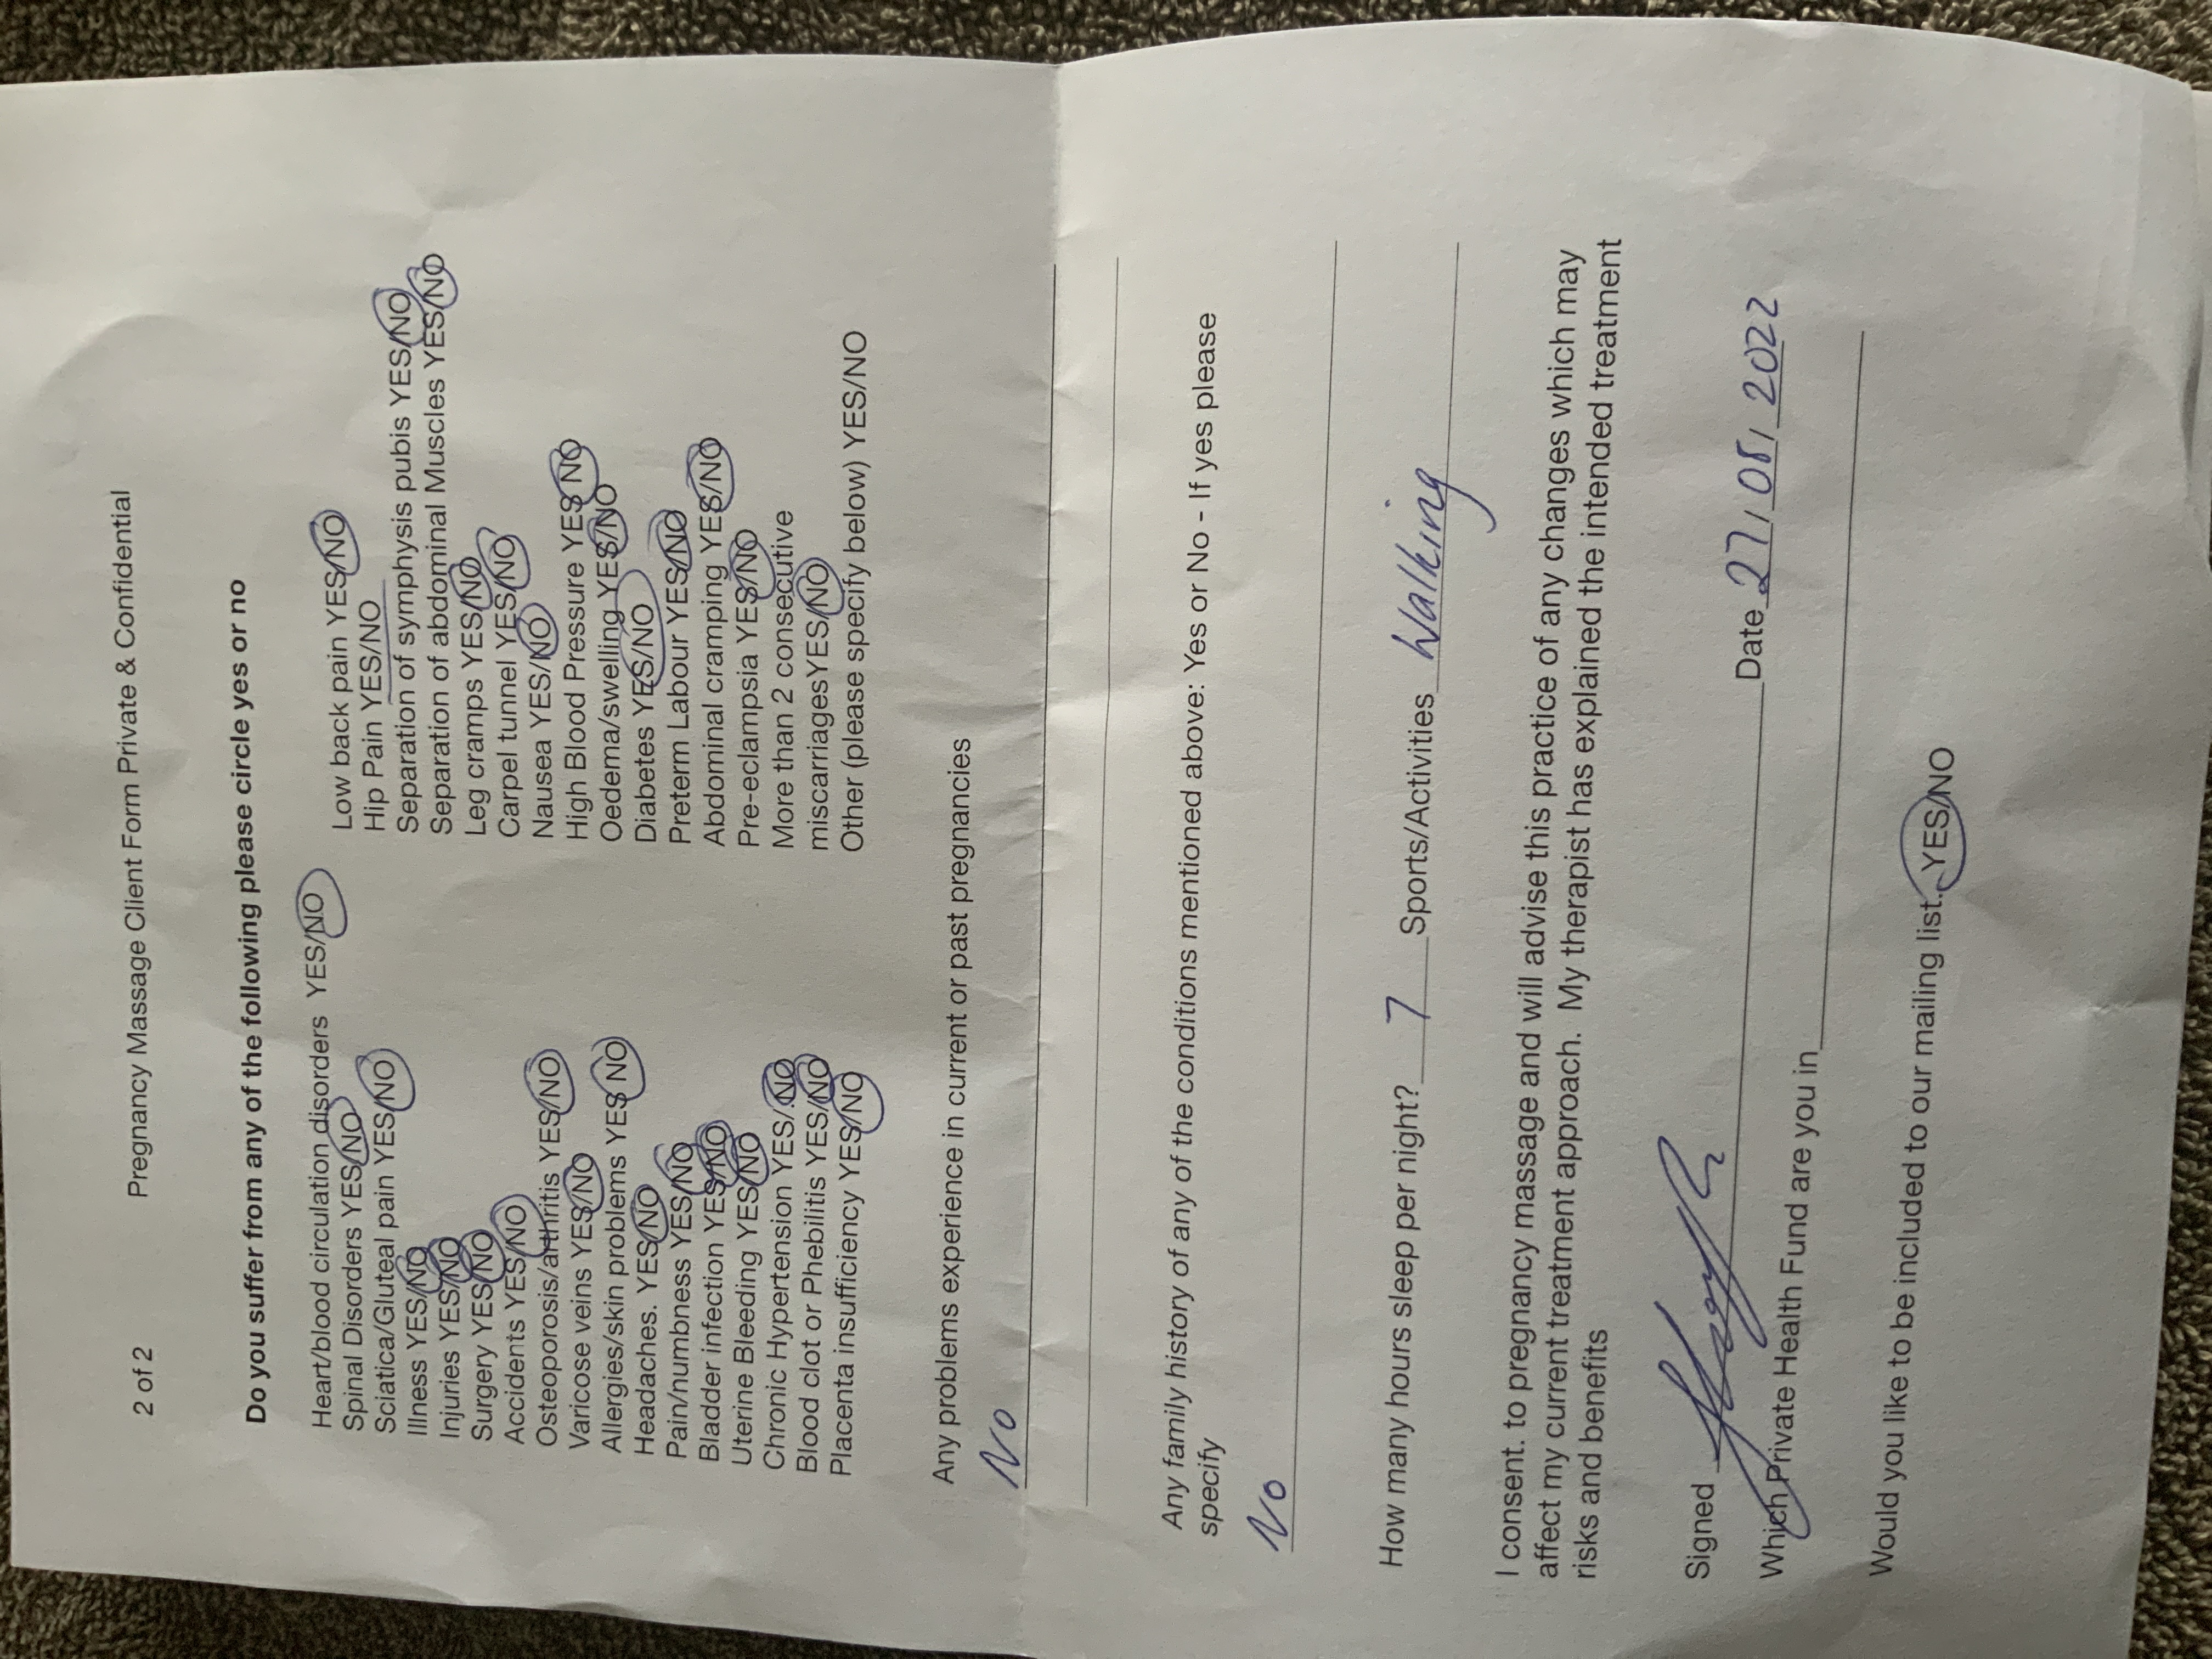 2 of 2 Pregnancy Massage Client Form Private & Confidential
Do you suffer from any of the following please circle yes or no
Heart/blood circulation disorders YES/NO
Spinal Disorders YES/NO
Sciatica/Gluteal pain YES/NO
Illness YES/NO
Injuries YES/NO
Surgery YES/NO
Accidents YES/NO
Osteoporosis/arthritis YES/NO
Varicose veins YES/NO
Allergies/skin problems YES NO
Headaches. YES/NO
Pain/numbness YES/NO
Bladder infection YES/NO
Uterine Bleeding YES/NO
Chronic Hypertension YES/.NO
Blood clot or Phebilitis YES/NO
Placenta insufficiency YES/NO
Low back pain YES/NO
Hip Pain YES/NO
Separation of symphysis pubis YES/NO
Separation of abdominal Muscles YES/NO
Leg cramps YES/NO
Carpel tunnel YES/NO
Nausea YES/NO
High Blood Pressure YES NO
Oedema/swelling YES/NO
Diabetes YES/NO
Preterm Labour YES/NO
Abdominal cramping YES/NO
Pre-eclampsia YES/NO
More than 2 consecutive
miscarriagesYES/NO
Other (please specify below) YES/NO
Any problems experience in current or past pregnancies
No
Any family history of any of the conditions mentioned above: Yes or No - If yes please
specify
No
How many hours sleep per night? 7 Sports/Activities Walking
I consent. to pregnancy massage and will advise this practice of any changes which may
affect my current treatment approach. My therapist has explained the intended treatment
risks and benefits
Signed Date 27/08/2022
Which Private Health Fund are you in
Would you like to be included to our mailing list. YES/NO